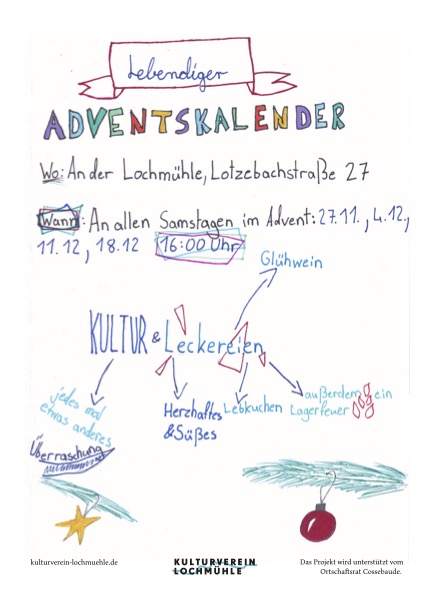 Lebendiger
ADVENTSKALENDER
Wo: An der Lochmühle, Lotzebachstraße 27
Wann: An allen Samstagen im Advent: 27.11., 4.12.,
11.12, 18.12 16:00 Uhr
Glühwein
KULTUR & Leckereien
jedes mal
etwas anderes
Überraschung
Herzhaftes
& Süßes
Lebkuchen
außerdem ein
Lagerfeuer
kulturverein-lochmuehle.de
KULTURVEREIN
LOCHMÜHLE
Das Projekt wird unterstützt vom
Ortschaftsrat Cossebaude.